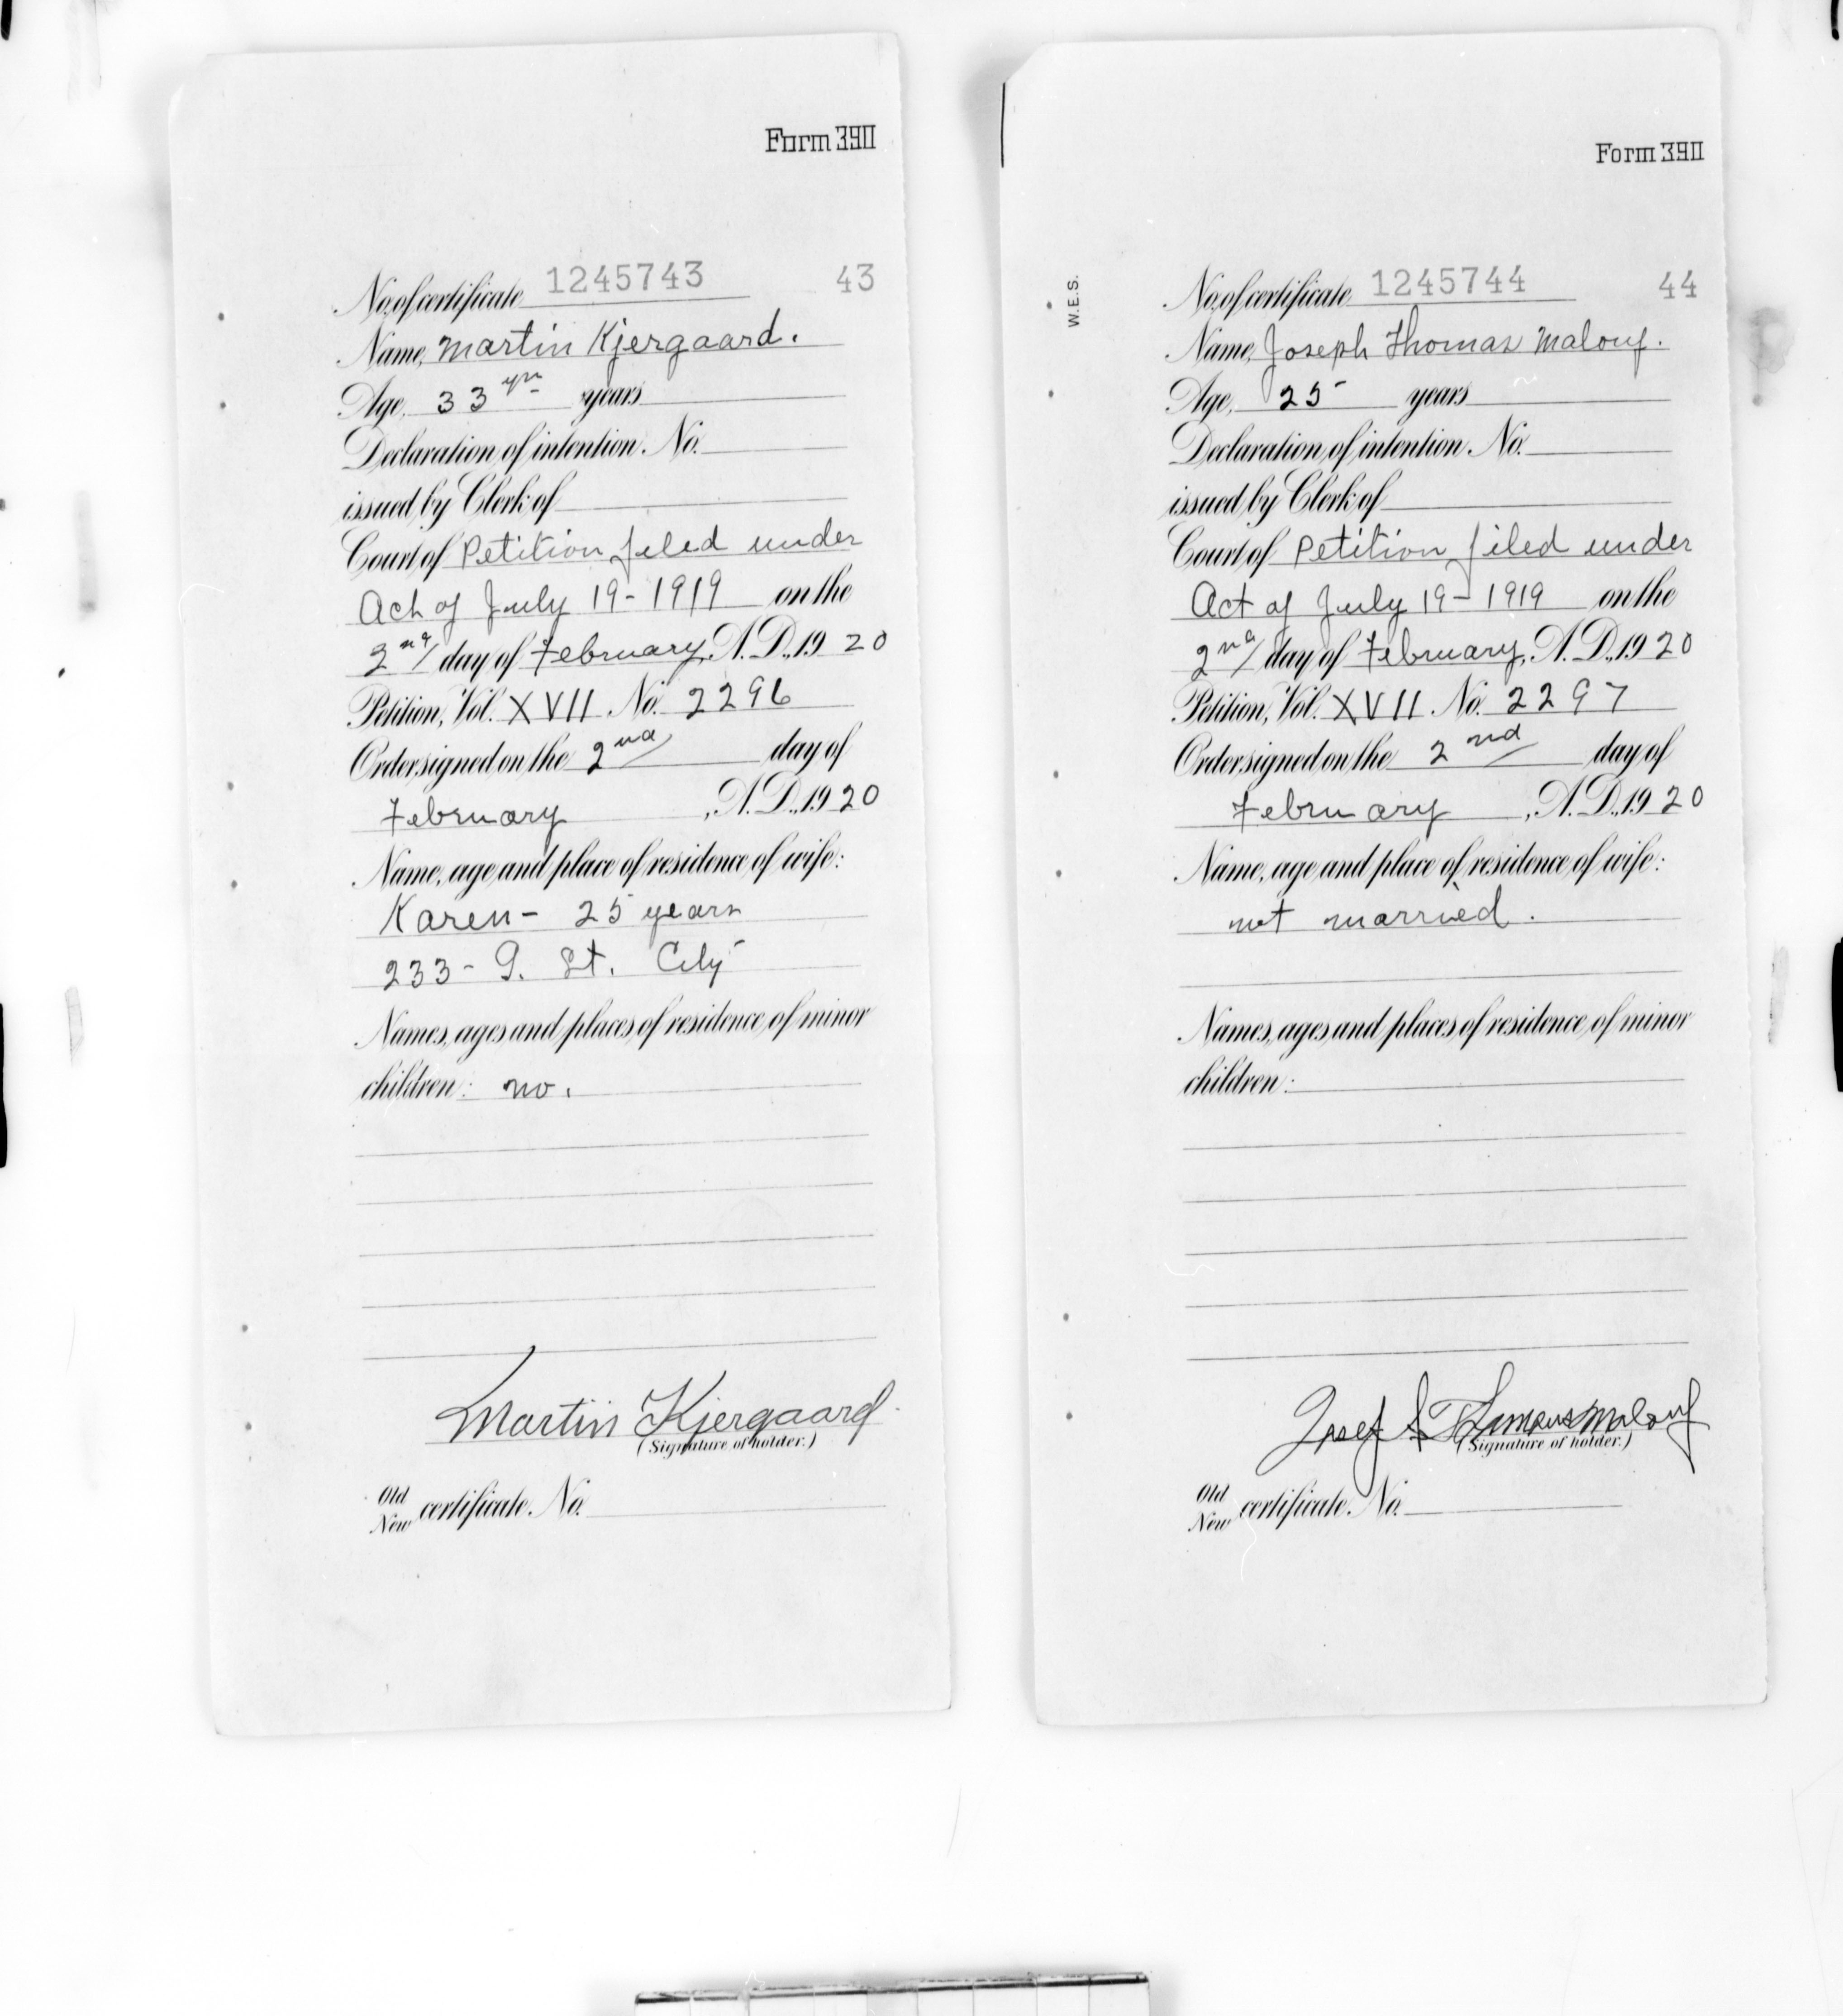 Form 390
No. of certificate 1245743 43
Name, Martin Kjergaard.
Age, 33 yrs years
Declaration of intention. No.
issued by Clerk of
Court of Petition filed under
Act of July 19-1919 on the
2nd day of February, A.D., 1920
Petition, Vol. XVII No. 2296
Order signed on the 2nd day of
February, A.D., 1920
Name, age and place of residence of wife:
Karen - 25 years
233 - G. St. City
Names, ages and places of residence of minor
children: no.
Martin Kjergaard
(Signature of holder.)
Old
New certificate. No.
Form 390
W.E.S.
No. of certificate 1245744 44
Name, Joseph Thomas Malouf.
Age, 25 years
Declaration of intention. No.
issued by Clerk of
Court of Petition filed under
Act of July 19-1919 on the
2nd day of February, A.D., 1920
Petition, Vol. XVII No. 2297
Order signed on the 2nd day of
February, A.D., 1920
Name, age and place of residence of wife:
not married.
Names, ages and places of residence of minor
children:
Josef Malouf
(Signature of holder.)
Old
New certificate. No.